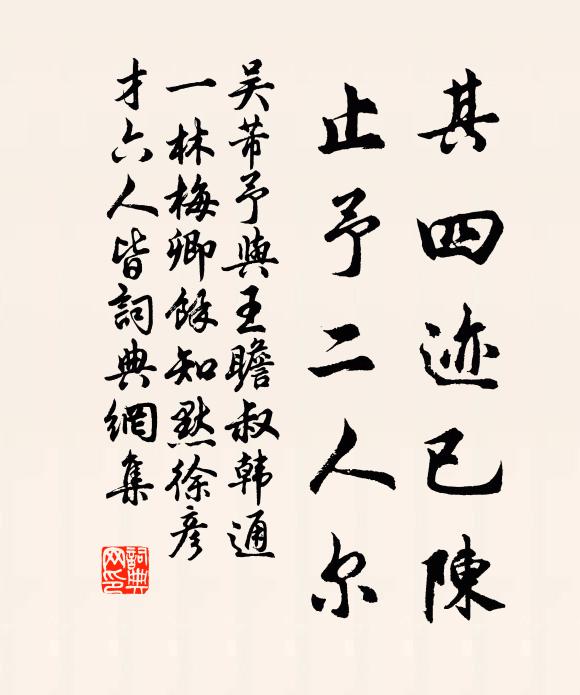 其四迹已陳
止予二人尔
吴芾予與王瞻叔韩通
一林梅卿餘知㸃徐彦
才六人皆詞典網集
詞典
网印